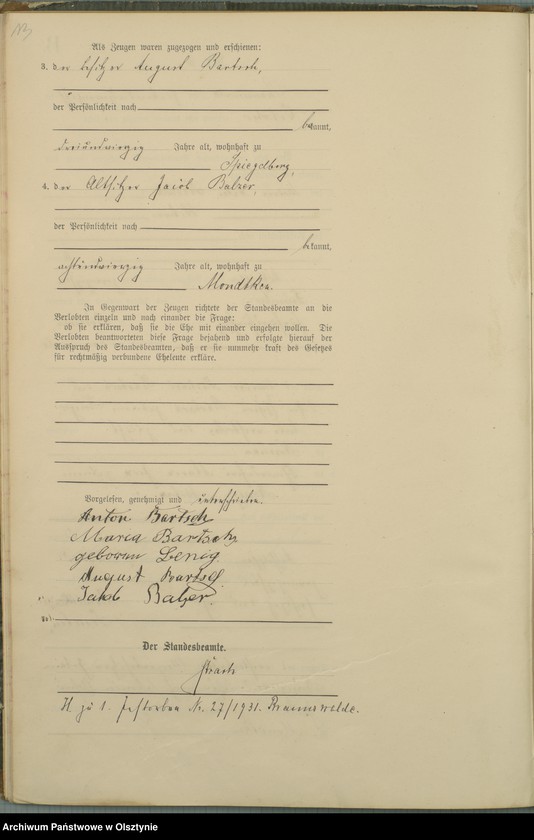 Als Zeugen waren zugezogen und erschienen:
3. der Besitzer August Bartsch,
der Persönlichkeit nach
bekannt,
dreiundvierzig Jahre alt, wohnhaft zu
Spiegelberg,
4. der Altsitzer Jacob Balzer,
der Persönlichkeit nach
bekannt,
achtundvierzig Jahre alt, wohnhaft zu
Mondtken.
In Gegenwart der Zeugen richtete der Standesbeamte an die
Verlobten einzeln und nach einander die Frage:
ob sie erklären, daß sie die Ehe mit einander eingehen wollen. Die
Verlobten beantworteten diese Frage bejahend und erfolgte hierauf der
Ausspruch des Standesbeamten, daß er sie nunmehr kraft des Gesetzes
für rechtmäßig verbundene Eheleute erkläre.
Vorgelesen, genehmigt und unterschrieben.
Anton Bartsch
Maria Bartsch
geboren Lenig
August Bartsch
Jakob Balzer.
Der Standesbeamte.
H. zu 1. Gestorben Nr. 27/1931. Braunswalde.
Archiwum Państwowe w Olsztynie